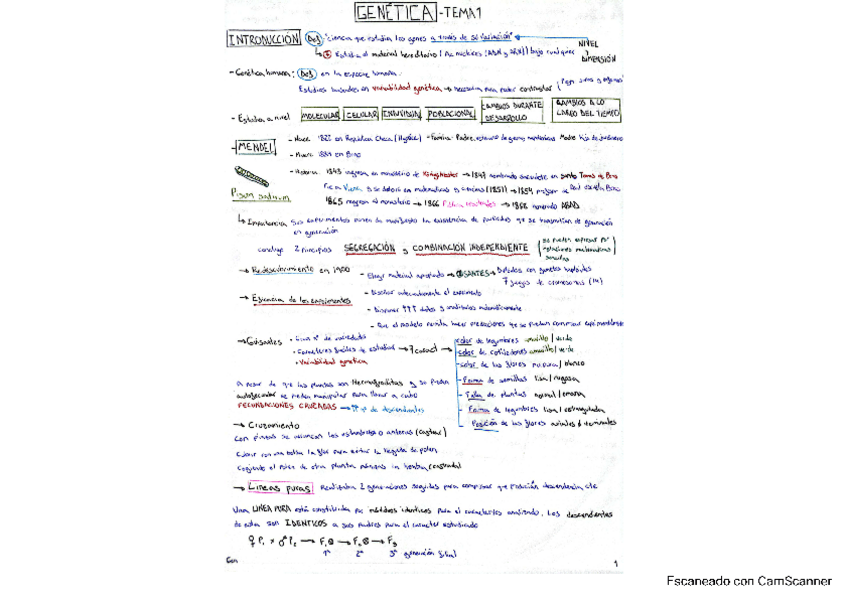 GENÉTICA - TEMA 1
INTRODUCCIÓN Def "ciencia que estudia los genes a través de su variación"
Estudia el material hereditario (Ac nucleicos (ADN y ARN)) bajo cualquier NIVEL y DIMENSIÓN
- Genética humana: Def en la especie humana.
Estudios basados en variabilidad genética → necesaria para poder contrastar
- Estudia a nivel MOLECULAR CELULAR INDIVIDUAL POBLACIONAL CAMBIOS DURANTE DESARROLLO CAMBIOS A LO LARGO DEL TIEMPO
- MENDEL - Nace 1822 en República Checa - Familia: Padre
- Muere 1884 en Brno
- Historia: 1843 ingresa en monasterio de → 1847 nombrado sacerdote en santo Tomás de Brno
Pisum sativum
Fue a Viena y se doctoró en matemáticas y ciencias (1851) → 1854 profesor de
1865 regresa al monasterio → 1866 → 1868 nombrado ABAD
↳ Importancia: Sus experimentos ponen de manifiesto la existencia de partículas que se transmiten de generación
en generación
concluye 2 principios SEGREGACIÓN y COMBINACIÓN INDEPENDIENTE se pueden expresar en relaciones matemáticas sencillas
→ Redescubrimiento en 1900 - Elegir material apropiado → GUISANTES → Diploides con gametos haploides
7 juegos de cromosomas (14)
→ Eficiencia de los experimentos - Diseñar adecuadamente el experimento
- Disponer ↑↑↑ datos y analizarlos matemáticamente
- Que el modelo permita hacer predicciones que se puedan comprobar experimentalmente
→ Guisantes • Gran nº de variedades
• Caracteres fáciles de estudiar → 7 caract
• Variabilidad genética
- color de legumbres amarillo / verde
- color de cotiledones amarillo / verde
- color de las flores púrpura / blanco
- Forma de semillas lisa / rugosa
- Talla de plantas normal / enana
- Forma de legumbres lisa / estrangulada
- Posición de las flores axiales o terminales
A pesar de que las plantas son Hermafroditas y se pueden
autofecundar se pueden manipular para llevar a cabo
FECUNDACIONES CRUZADAS → ↑↑ nº de descendientes
→ Cruzamiento
Con pinzas se arrancan los estambres o anteras (castrar)
Cubrir con una bolsa la flor para evitar la llegada de polen
Cogiendo el polen de otra planta
→ Líneas puras Realizaba 2 generaciones seguidas para comprobar que descendencia, etc
Una LINEA PURA está constituida por individuos idénticos para el carácter analizado. Los descendientes
de esta son IDENTICOS a sus padres para el carácter estudiado
♀ P1 × ♂ P2 → F1 ⊗ → F2 ⊗ → F3
1ª 2ª 3ª generación filial
Gen 1
Escaneado con CamScanner